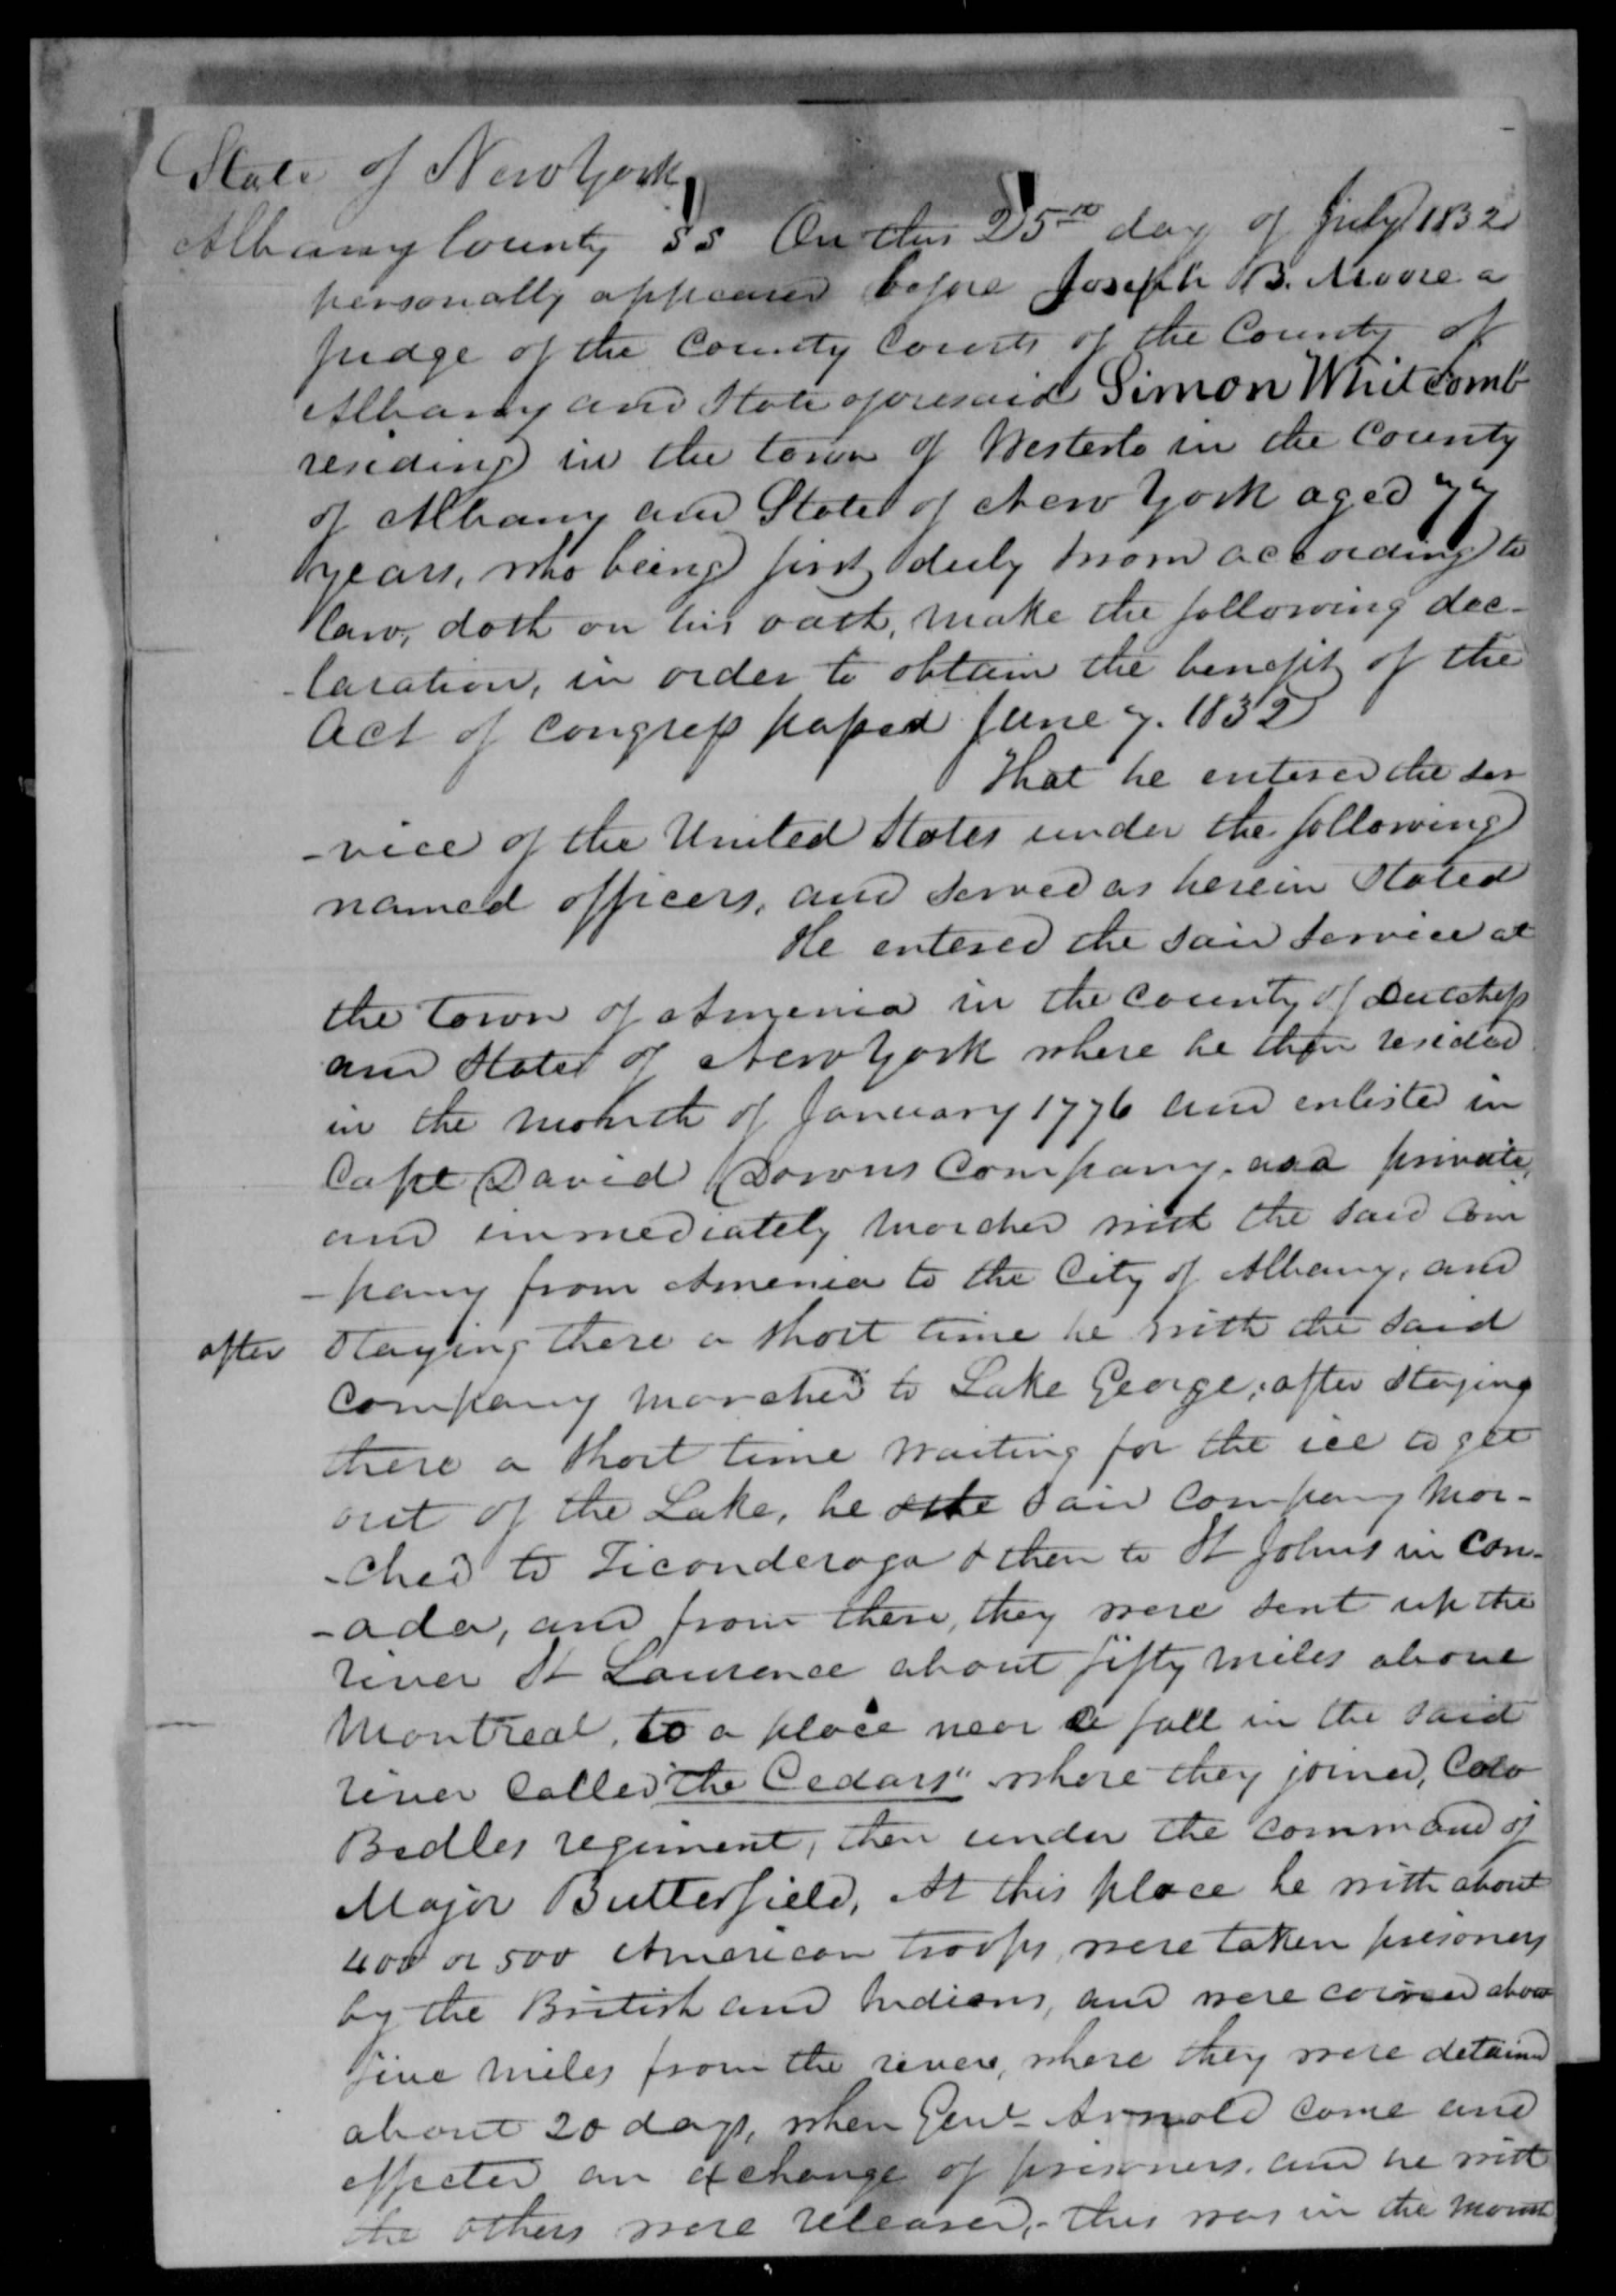 State of New York
Albany County ss On this 25th day of July 1832
personally appeared before Joseph B. Moore a
judge of the County Courts of the County of
Albany and State aforesaid Simon Whitcomb
residing in the town of Westerlo in the County
of Albany and State of New York aged 77
years, who being first duly sworn according to
law, doth on his oath, make the following dec-
-laration, in order to obtain the benefit of the
Act of Congress passed June 7. 1832
That he entered the ser
-vice of the United States under the following
named officers, and served as herein stated
He entered the said service at
the town of Amenia in the County of Dutchess
and State of New York where he then resided
in the month of January 1776 and enlisted in
Capt David Downs Company as a private,
and immediately marched with the said Com
-pany from Amenia to the City of Albany, and
after staying there a short time he with the said
Company marched to Lake George, after staying
there a short time waiting for the ice to get
out of the Lake, he & the said Company mar-
-ched to Ticonderoga & then to St Johns in Can-
-ada, and from there, they were sent up the
river St Laurence about fifty miles above
Montreal, to a place near a fall in the said
river Called "the Cedars" where they joined, Colo
Bedles regiment, then under the command of
Major Butterfield, At this place he with about
400 or 500 American troops, were taken prisoners
by the British and Indians, and were carried about
five miles from the river, where they were detained
about 20 days, when Genl Arnold came and
effected an exchange of prisoners. and he with
the others were released, - this was in the month